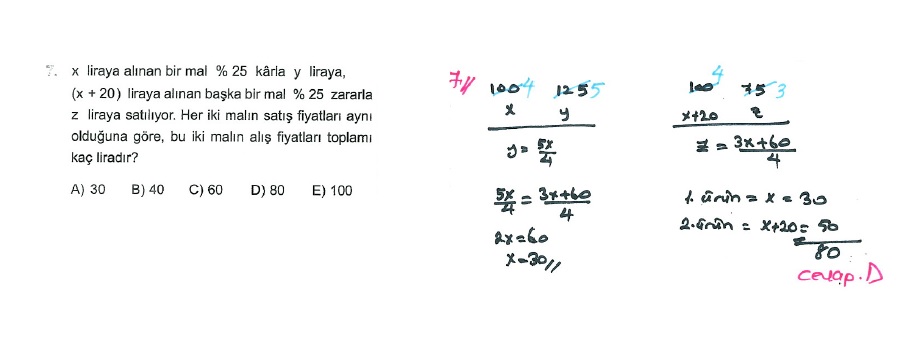 7. x liraya alınan bir mal % 25 kârla y liraya,
(x + 20) liraya alınan başka bir mal % 25 zararla
z liraya satılıyor. Her iki malın satış fiyatları aynı
olduğuna göre, bu iki malın alış fiyatları toplamı
kaç liradır?
A) 30 B) 40 C) 60 D) 80 E) 100
7//
100 4 125 5
x y
y = 5x/4
5x/4 = 3x+60/4
2x=60
x=30//
100 4 75 3
x+20 z
z = 3x+60/4
1. ürün = x = 30
2. ürün = x+20 = 50
80
cevap. D